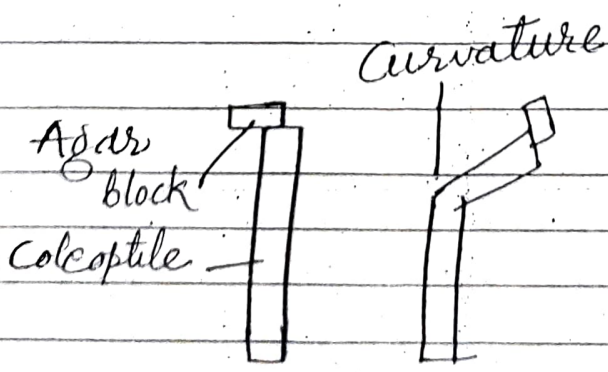 Curvature
Agar
block
Coleoptile